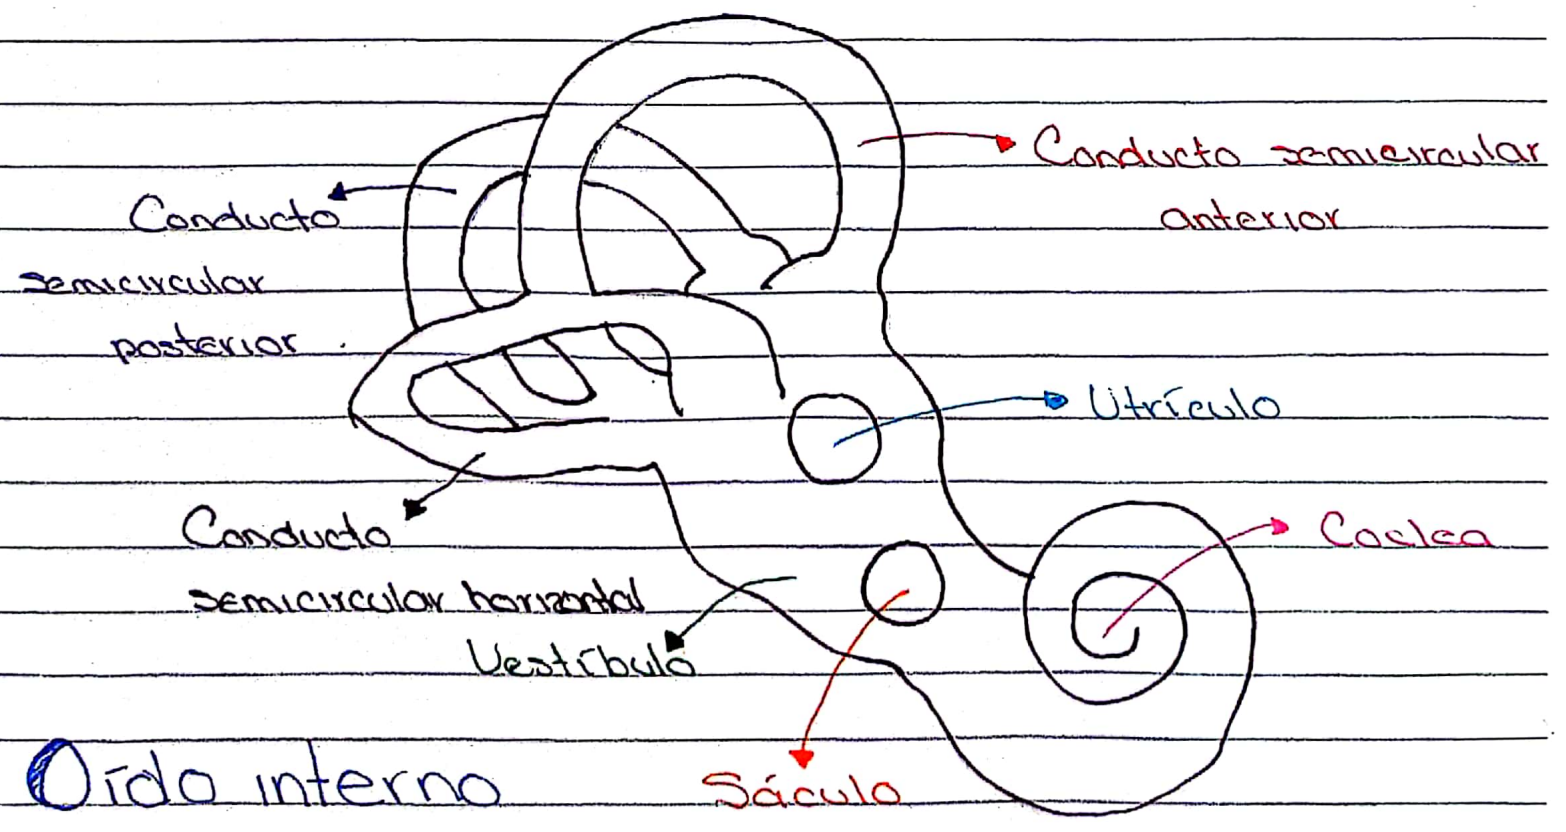 Conducto semicircular
anterior
Conducto
semicircular
posterior
Utrículo
Conducto
semicircular horizontal
Coclea
Vestíbulo
Oído interno
Sáculo